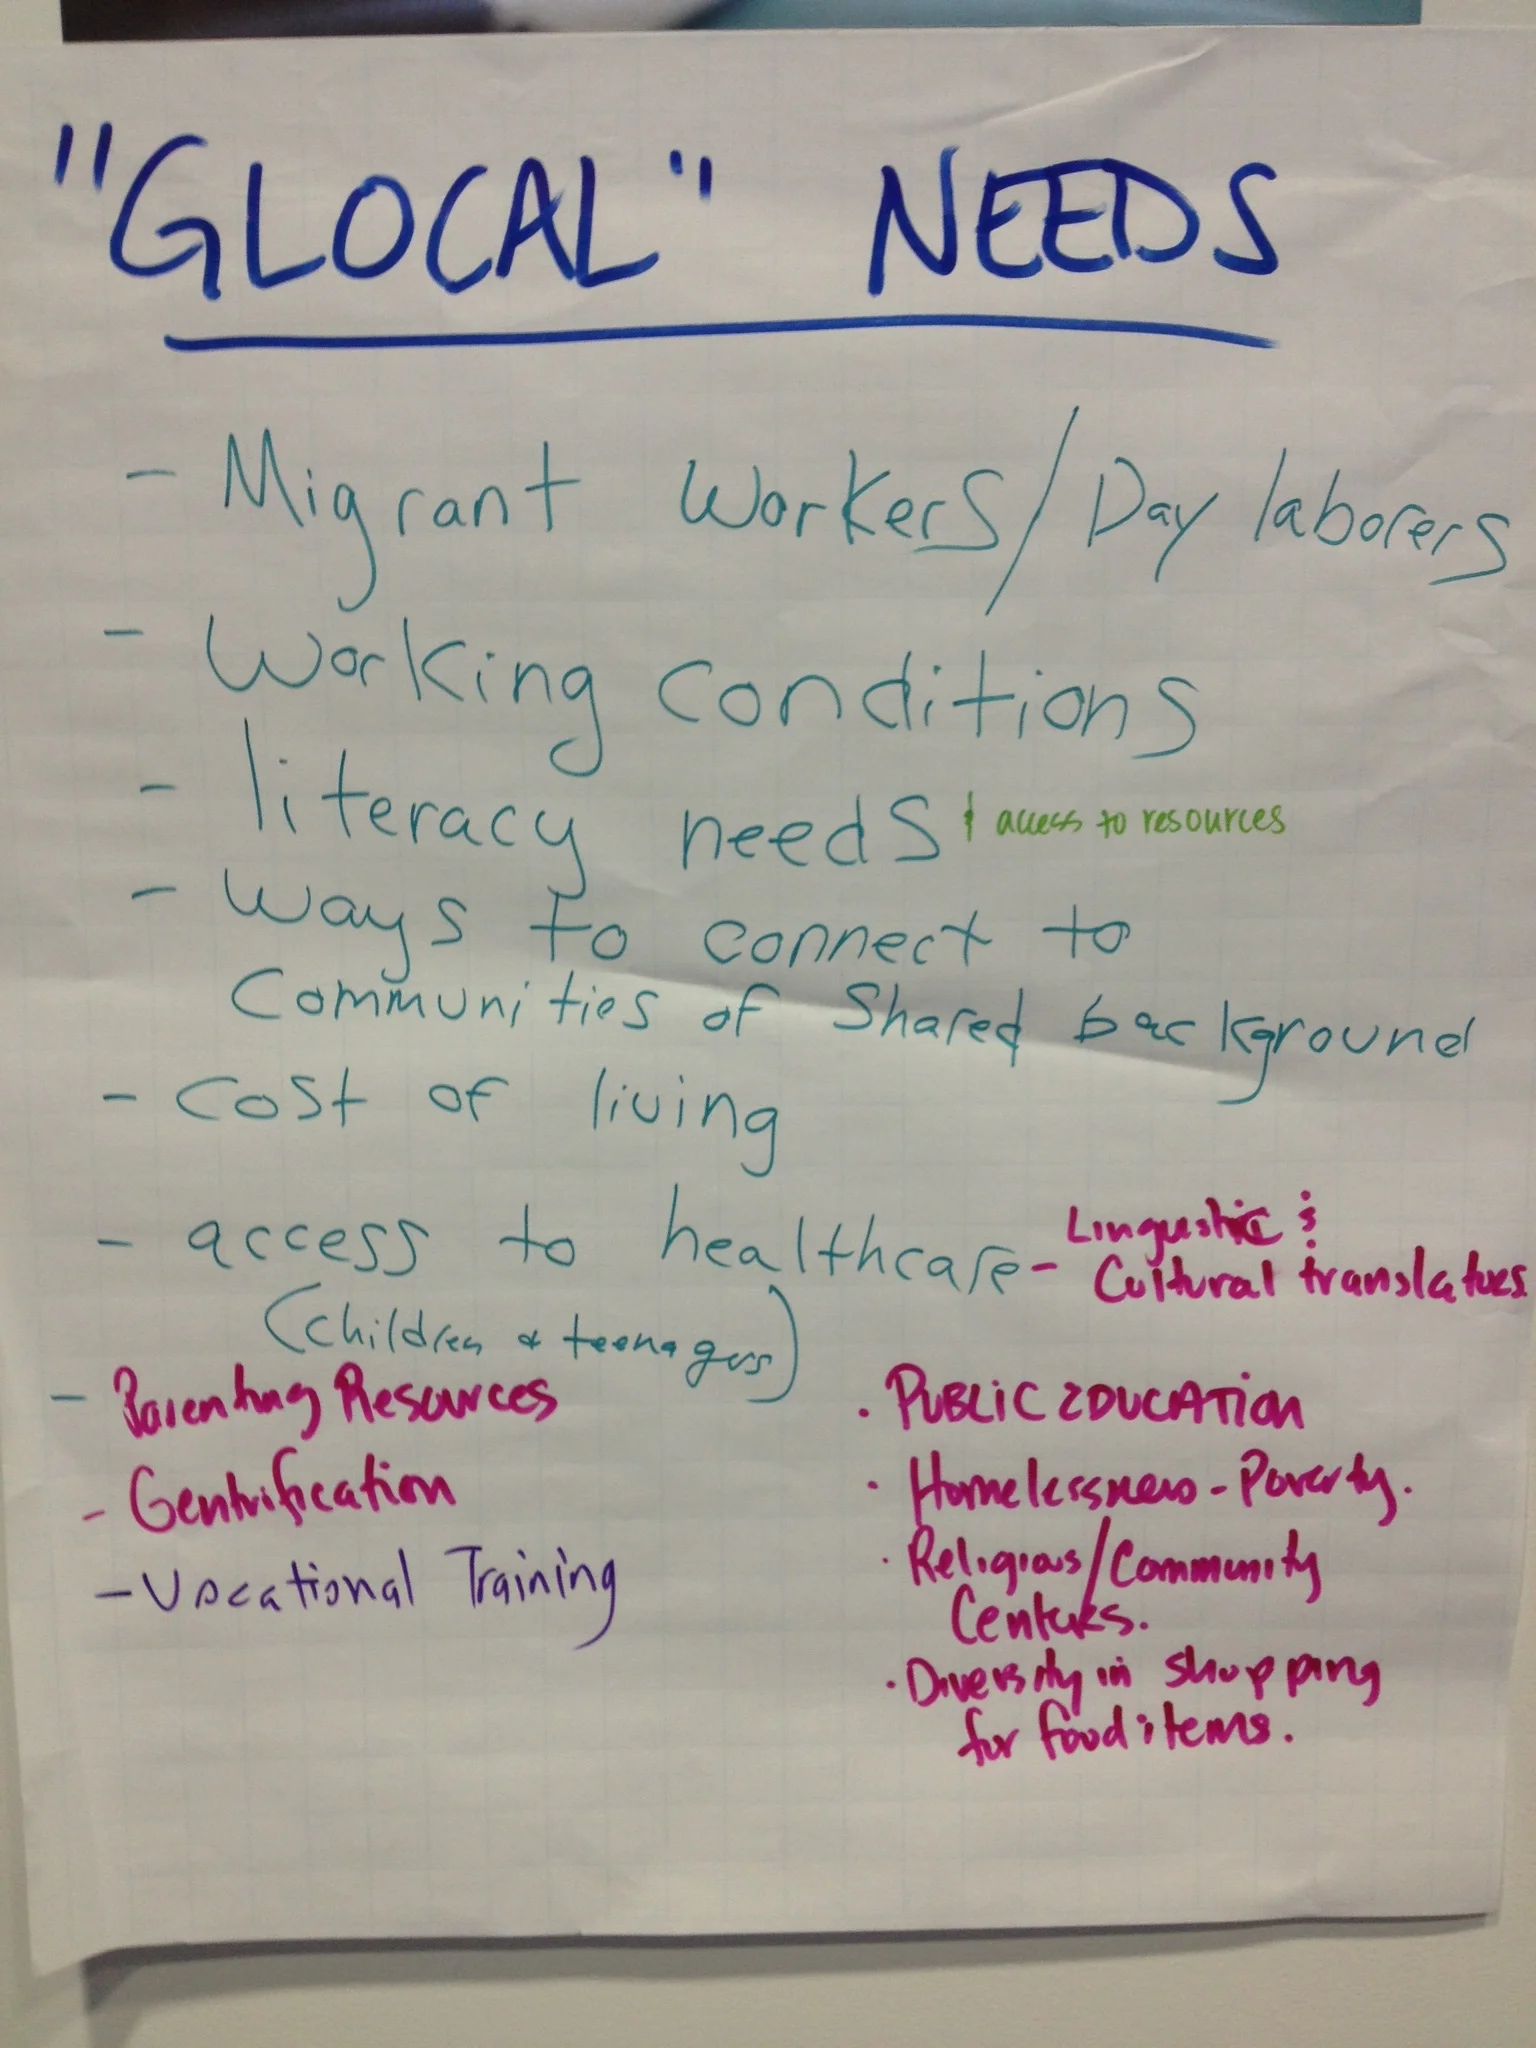 "GLOCAL" NEEDS
- Migrant Workers/Day laborers
- Working conditions
- literacy needs & access to resources
- Ways to connect to
Communities of Shared background
- Cost of living
- access to healthcare - Linguistic &
Cultural translators.
(children & teenagers)
- Parenting Resources
- Gentrification
- Vocational Training
· PUBLIC EDUCATION
· Homelessness - Poverty.
· Religious/Community
Centers.
· Diversity in shopping
for food items.